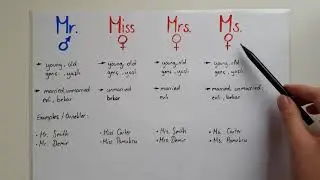 Mr. Miss Mrs. Ms.
→ young, old → young, old → young, old → young, old
genç, yaşlı genç, yaşlı genç, yaşlı genç, yaşlı
→ married, unmarried → unmarried → married → married, unmarried
evli, bekar bekar evli evli, bekar
Examples / Örnekler:
• Mr. Smith • Miss Carter • Mrs. Smith • Ms. Carter
• Mr. Demir • Miss Pamuksu • Mrs. Demir • Ms. Pamuksu